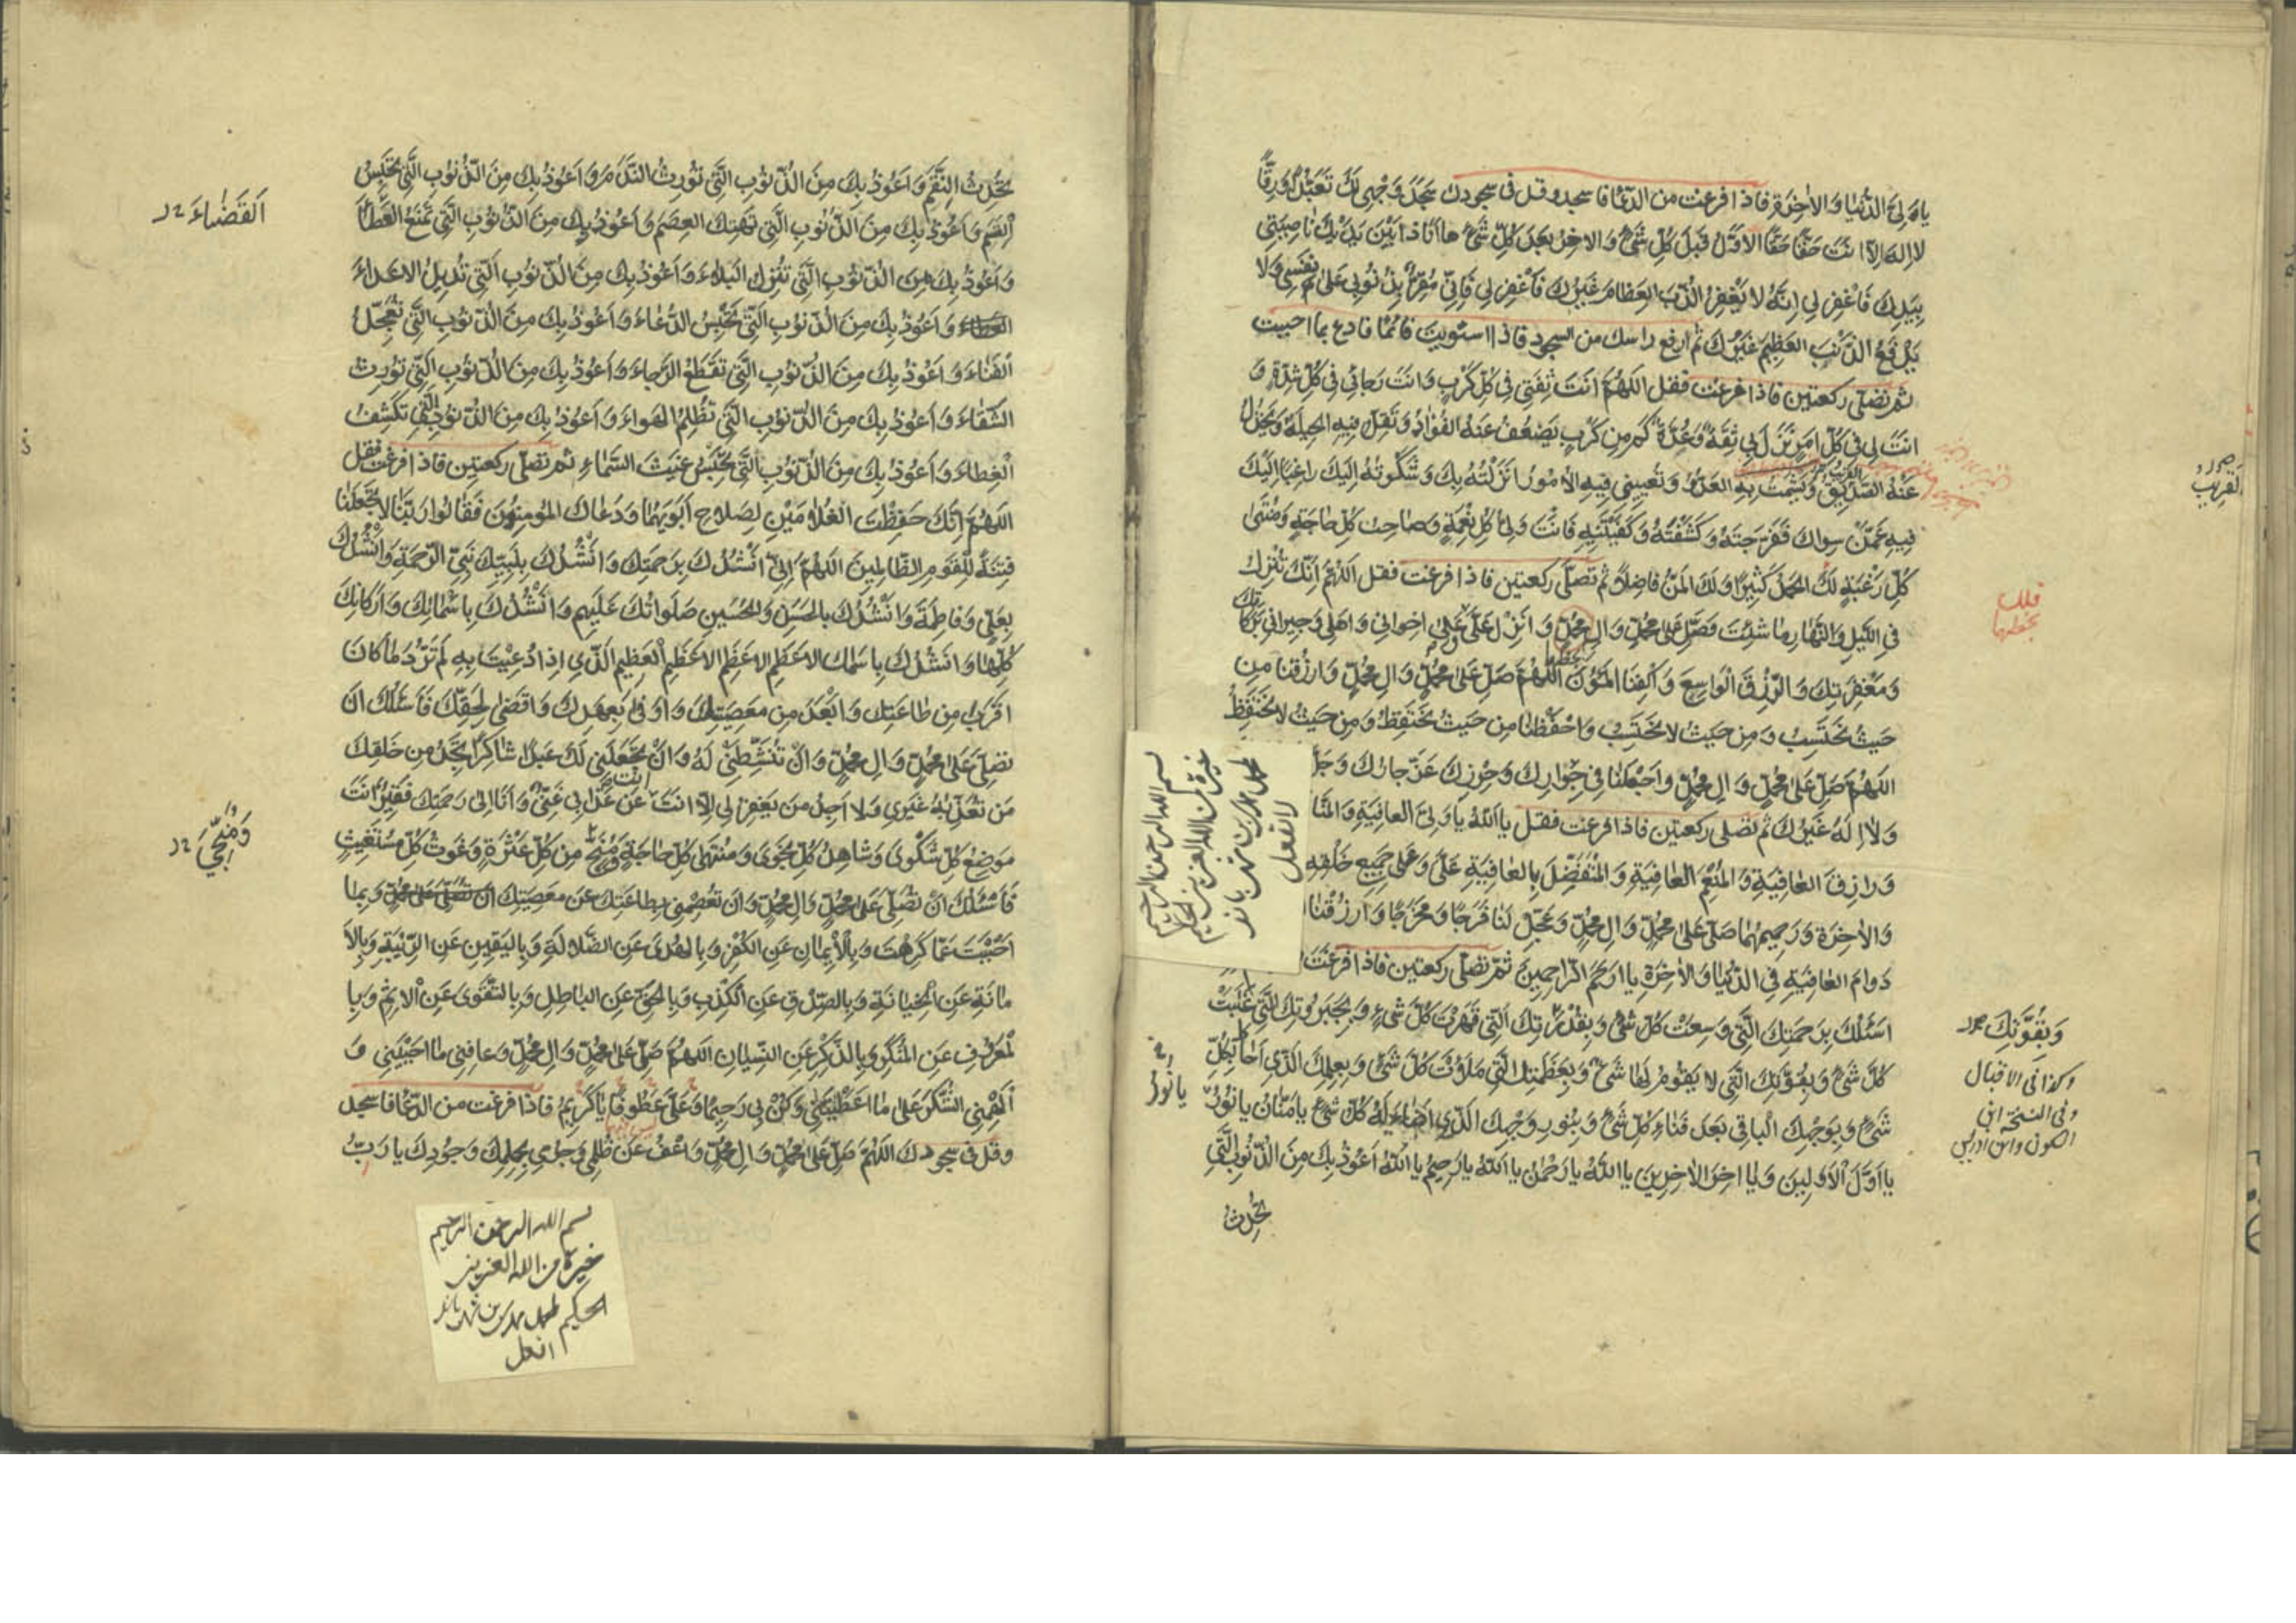 يا وَلِيَّ الدُّنْيا وَالاٰخِرَةِ فاذا فرغت من الدّعا فاسجد وقل فى سجودك سَجَدَ وَجْهِى لَكَ تَعَبُّدًا وَرِقًّا
لا اِلهَ اِلّا اَنْتَ حَقًّا حَقًّا الاَوَّلُ قَبْلَ كُلِّ شَيْءٍ وَالاخِرُ بَعْدَ كُلِّ شَيْءٍ ها اَنَا ذا بَيْنَ يَدَيْكَ ناصِيَتِى
بِيَدِكَ فَاغْفِرْ لِى اِنَّهُ لا يَغْفِرُ الذَّنْبَ العِظامَ غَيْرُكَ فَاغْفِرْ لِى فَاِنِّى مُقِرٌّ بِذُنُوبِى عَلى نَفْسِى وَلا
يَدْفَعُ الذَّنْبَ العَظِيمَ غَيْرُكَ ثم ارفع راسك من السجود فاذا استويت قائمًا فادع بما احببت
ثم تصلّى ركعتين فاذا فرغت فقل اللهُمَّ اَنْتَ ثِقَتِى فِى كُلِّ كَرْبٍ وَاَنْتَ رَجائِى فِى كُلِّ شِدَّةٍ وَ
اَنْتَ لِى فِى كُلِّ اَمْرٍ نَزَلَ بِى ثِقَةٌ وَعُدَّةٌ كَمْ مِنْ كَرْبٍ يَضْعُفُ عَنْهُ الفُؤادُ وَتَقِلُّ فِيهِ الحِيلَةُ وَيَخْذُلُ
عَنْهُ القَرِيبُ الصَّدِيقُ وَيَشْمَتُ بِهِ العَدُوُّ وَتُعْيِينِى فِيهِ الاُمُورُ اَنْزَلْتُهُ بِكَ وَشَكَوْتُهُ اِلَيْكَ راغِبًا اِلَيْكَ
فِيهِ عَمَّنْ سِواكَ فَفَرَّجْتَهُ وَكَشَفْتَهُ وَكَفَيْتَنِيهِ فَاَنْتَ وَلِيُّ كُلِّ نِعْمَةٍ وَصاحِبُ كُلِّ حاجَةٍ وَمُنْتَهى
كُلِّ رَغْبَةٍ لَكَ الحَمْدُ كَثِيرًا وَلَكَ المَنُّ فاضِلًا ثم تصلّى ركعتين فاذا فرغت فقل اللهُمَّ اِنَّكَ تُنْزِلُ
فِى اللَّيْلِ وَالنَّهارِ ما شِئْتَ فَصَلِّ عَلى مُحَمَّدٍ وَالِ مُحَمَّدٍ وَاَنْزِلْ عَلَيَّ وَعَلى اِخْوانِى وَاَهْلِى وَجِيرانِى بَرَكاتِكَ
وَمَغْفِرَتِكَ وَالرِّزْقَ الْواسِعَ وَاكْفِنَا المُؤَنَ اللهُمَّ صَلِّ عَلى مُحَمَّدٍ وَالِ مُحَمَّدٍ وَارْزُقْنا مِنْ
حَيْثُ نَحْتَسِبُ وَمِنْ حَيْثُ لا نَحْتَسِبُ وَاحْفَظْنا مِنْ حَيْثُ نَحْتَفِظُ وَمِنْ حَيْثُ لا نَحْتَفِظُ
اللهُمَّ صَلِّ عَلى مُحَمَّدٍ وَالِ مُحَمَّدٍ وَاجْعَلْنا فِى جِوارِكَ وَحِرْزِكَ عَزَّ جارُكَ وَجَلَّ
وَلا اِلهَ غَيْرُكَ ثم تصلى ركعتين فاذا فرغت فقل يا اَللهُ يا وَلِيَّ العافِيَةِ وَالمَنّا
وَرازِقَ العافِيَةِ وَالمُنْعِمَ العافِيَةِ وَالمُتَفَضِّلَ بِالعافِيَةِ عَلَيَّ وَعَلى جَمِيعِ خَلْقِهِ
وَالاٰخِرَةِ وَرَحِيمَهُما صَلِّ عَلى مُحَمَّدٍ وَالِ مُحَمَّدٍ وَعَجِّلْ لَنا فَرَجًا وَمَخْرَجًا وَارْزُقْنَا
دَوامَ العافِيَةِ فِى الدُّنْيا وَالاٰخِرَةِ يا اَرْحَمَ الرّاحِمِينَ ثمّ تصلّى ركعتين فاذا فرغت
اَسْئَلُكَ بِرَحْمَتِكَ الَّتِى وَسِعَتْ كُلَّ شَيْءٍ وَبِقُدْرَتِكَ الَّتِى قَهَرْتَ كُلَّ شَيْءٍ وَبِجَبَرُوتِكَ الَّتِى غَلَبَتْ
كُلَّ شَيْءٍ وَبِقُوَّتِكَ الَّتِى لا يَقُومُ لَها شَيْءٌ وَبِعَظَمَتِكَ الَّتِى مَلَأَتْ كُلَّ شَيْءٍ وَبِعِلْمِكَ الَّذِى اَحاطَ بِكُلِّ
شَيْءٍ وَبِوَجْهِكَ الْباقِى بَعْدَ فَناءِ كُلِّ شَيْءٍ وَبِنُورِ وَجْهِكَ الَّذِى اَضاءَ لَهُ كُلُّ شَيْءٍ يا مَنّانُ يا نُورُ
يا اَوَّلَ الْاَوَّلِينَ وَيا اخِرَ الاٰخِرِينَ يا اَللهُ يا رَحْمٰنُ يا اَللهُ يا رَحِيمُ يا اَللهُ اَعُوذُ بِكَ مِنَ الذُّنُوبِ الَّتِى
تُحْدِثُ
القَرِيبُ
وَبِقُوَّتِكَ
وكذا فى الاقبال
وفى النسخة ابن
السكون وابن ادريس
يا نُورُ
بسم الله الرحمن الرحيم
خيرة من الله العزيز الحكيم
لا تفعل
تُحْدِثُ النِّقَمَ وَاَعُوذُ بِكَ مِنَ الذُّنُوبِ الَّتِى تُورِثُ النَّدَمَ وَاَعُوذُ بِكَ مِنَ الذُّنُوبِ الَّتِى تَحْبِسُ
الْقِسَمَ وَاَعُوذُ بِكَ مِنَ الذُّنُوبِ الَّتِى تَهْتِكُ العِصَمَ وَاَعُوذُ بِكَ مِنَ الذُّنُوبِ الَّتِى تَمْنَعُ العَطاءَ
وَاَعُوذُ بِكَ مِنَ الذُّنُوبِ الَّتِى تُنْزِلُ البَلاءَ وَاَعُوذُ بِكَ مِنَ الذُّنُوبِ الَّتِى تُدِيلُ الاَعْداءَ
وَاَعُوذُ بِكَ مِنَ الذُّنُوبِ الَّتِى تَحْبِسُ الدُّعاءَ وَاَعُوذُ بِكَ مِنَ الذُّنُوبِ الَّتِى تُعَجِّلُ
الْفَناءَ وَاَعُوذُ بِكَ مِنَ الذُّنُوبِ الَّتِى تَقْطَعُ الرَّجاءَ وَاَعُوذُ بِكَ مِنَ الذُّنُوبِ الَّتِى تُورِثُ
الشَّقاءَ وَاَعُوذُ بِكَ مِنَ الذُّنُوبِ الَّتِى تُظْلِمُ الهَواءَ وَاَعُوذُ بِكَ مِنَ الذُّنُوبِ الَّتِى تَكْشِفُ
الْغِطاءَ وَاَعُوذُ بِكَ مِنَ الذُّنُوبِ الَّتِى تَحْبِسُ غَيْثَ السَّماءِ ثم تصلّى ركعتين فاذا فرغت فقل
اللهُمَّ اِنَّكَ حَفِظْتَ الغُلامَيْنِ لِصَلاحِ اَبَوَيْهِما وَدَعاكَ المُؤْمِنُونَ فَقالُوا رَبَّنا لا تَجْعَلْنا
فِتْنَةً لِلْقَوْمِ الظّالِمِينَ اللهُمَّ اِنِّى اَنْشُدُكَ بِرَحْمَتِكَ وَاَنْشُدُكَ بِنَبِيِّكَ نَبِيِّ الرَّحْمَةِ وَاَنْشُدُكَ
بِعَلِيٍّ وَفاطِمَةَ وَاَنْشُدُكَ بِالحَسَنِ وَالحُسَيْنِ صَلَواتُكَ عَلَيْهِم وَاَنْشُدُكَ بِاَسْمائِكَ وَاَرْكانِكَ
كُلِّها وَاَنْشُدُكَ بِاسْمِكَ الاَعْظَمِ الاَعْظَمِ الاَعْظَمِ الْعَظِيمِ الَّذِى اِذا دُعِيتَ بِهِ لَمْ تَرُدَّ ما كانَ
اَقْرَبَ مِنْ طاعَتِكَ وَاَبْعَدَ مِنْ مَعْصِيَتِكَ وَاَوْفى بِعَهْدِكَ وَاَقْضى لِحَقِّكَ فَاَسْئَلُكَ اَنْ
تُصَلِّىَ عَلى مُحَمَّدٍ وَالِ مُحَمَّدٍ وَاَنْ تُنَشِّطَنِى لَهُ وَاَنْ تَجْعَلَنِى لَكَ عَبْدًا شاكِرًا تَجِدُ مِنْ خَلْقِكَ
مَنْ تُعَذِّبُهُ غَيْرِى وَلا اَجِدُ مَنْ يَغْفِرُ لِى اِلّا اَنْتَ اَنْتَ عَنْ عَذابِى غَنِيٌّ وَاَنَا اِلى رَحْمَتِكَ فَقِيرٌ اَنْتَ
مَوْضِعُ كُلِّ شَكْوى وَشاهِدُ كُلِّ نَجْوى وَمُنْتَهى كُلِّ حاجَةٍ وَمُنْجٍ مِنْ كُلِّ عَثْرَةٍ وَغَوْثُ كُلِّ مُسْتَغِيثٍ
فَاَسْئَلُكَ اَنْ تُصَلِّىَ عَلى مُحَمَّدٍ وَالِ مُحَمَّدٍ وَاَنْ تَعْصِمَنِى بِطاعَتِكَ عَنْ مَعْصِيَتِكَ وَبِما
اَحْبَبْتَ عَمّا كَرِهْتَ وَبِالْاِيمانِ عَنِ الكُفْرِ وَبِالهُدى عَنِ الضَّلالَةِ وَبِاليَقِينِ عَنِ الرِّيبَةِ وَبِالاَ
مانَةِ عَنِ الْخِيانَةِ وَبِالصِّدْقِ عَنِ الكَذِبِ وَبِالحَقِّ عَنِ الباطِلِ وَبِالتَّقْوى عَنِ الاِثْمِ وَبِا
لْمَعْرُوفِ عَنِ المُنْكَرِ وَبِالذِّكْرِ عَنِ النِّسْيانِ اللهُمَّ صَلِّ عَلى مُحَمَّدٍ وَالِ مُحَمَّدٍ وَعافِنِى ما اَحْيَيْتَنِى وَ
اَلْهِمْنِى الشُّكْرَ عَلى ما اَعْطَيْتَنِى وَكُنْ بِى رَحِيمًا وَعَلَيَّ عَطُوفًا يا كَرِيمُ فاذا فرغت من الدّعا فاسجد
وقل فى سجودك اللهُمَّ صَلِّ عَلى مُحَمَّدٍ وَالِ مُحَمَّدٍ وَاعْفُ عَنْ ظُلْمِى وَجُرْمِى بِحِلْمِكَ وَجُودِكَ يا رَبِّ
اَلقَضاءَ
وَمُنْجِيَ
بسم الله الرحمن الرحيم
خيرة من الله العزيز
الحكيم
افعل